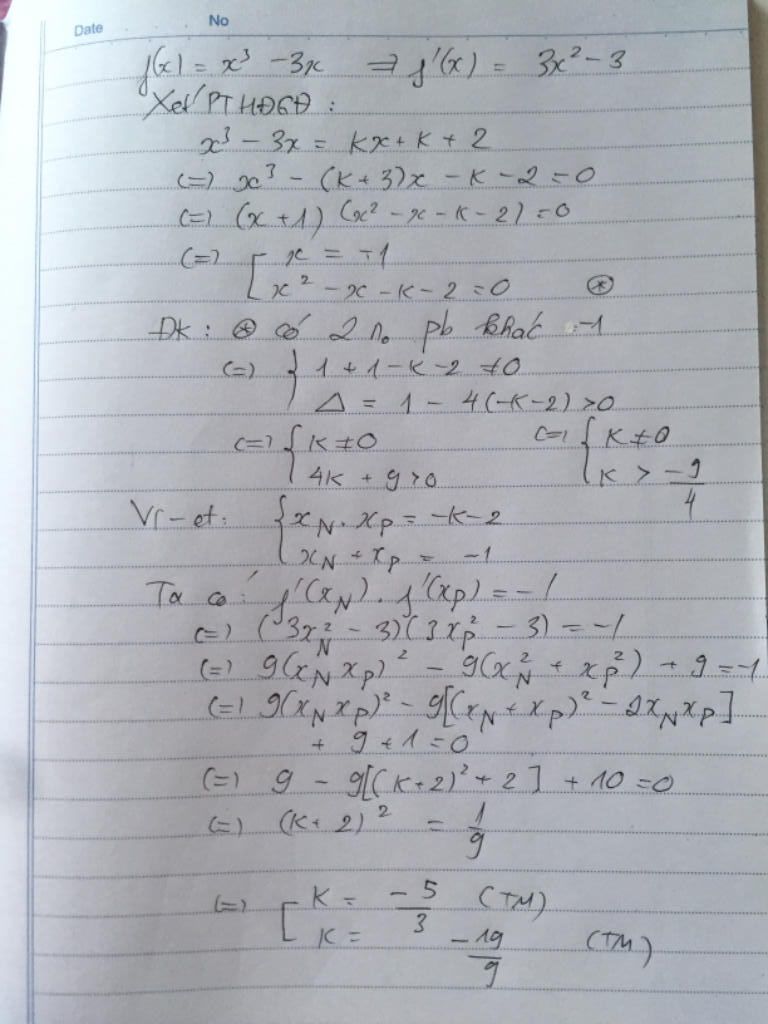 Date No
f(x) = x³ - 3x => f'(x) = 3x² - 3
Xét PTHĐGĐ :
x³ - 3x = kx + k + 2
(=) x³ - (k+3)x - k - 2 = 0
(=) (x+1) (x² - x - k - 2) = 0
(=) [ x = -1
x² - x - k - 2 = 0 ⊛
ĐK : ⊛ có 2 n₀ pb khác -1
(=) { 1 + 1 - k - 2 ≠ 0
Δ = 1 - 4(-k-2) > 0
(=) { k ≠ 0 (=) { k ≠ 0
4k + 9 > 0 k > -9/4
Vi-et: { x_N . x_P = -k-2
x_N + x_P = -1
Ta có: f'(x_N) . f'(x_P) = -1
(=) (3x_N² - 3)(3x_P² - 3) = -1
(=) 9(x_N x_P)² - 9(x_N² + x_P²) + 9 = -1
(=) 9(x_N x_P)² - 9[(x_N + x_P)² - 2x_N x_P]
+ 9 + 1 = 0
(=) 9 - 9[(k+2)² + 2] + 10 = 0
(=) (k+2)² = 1/9
(=) [ k = -5/3 (TM)
k = -19/9 (TM)